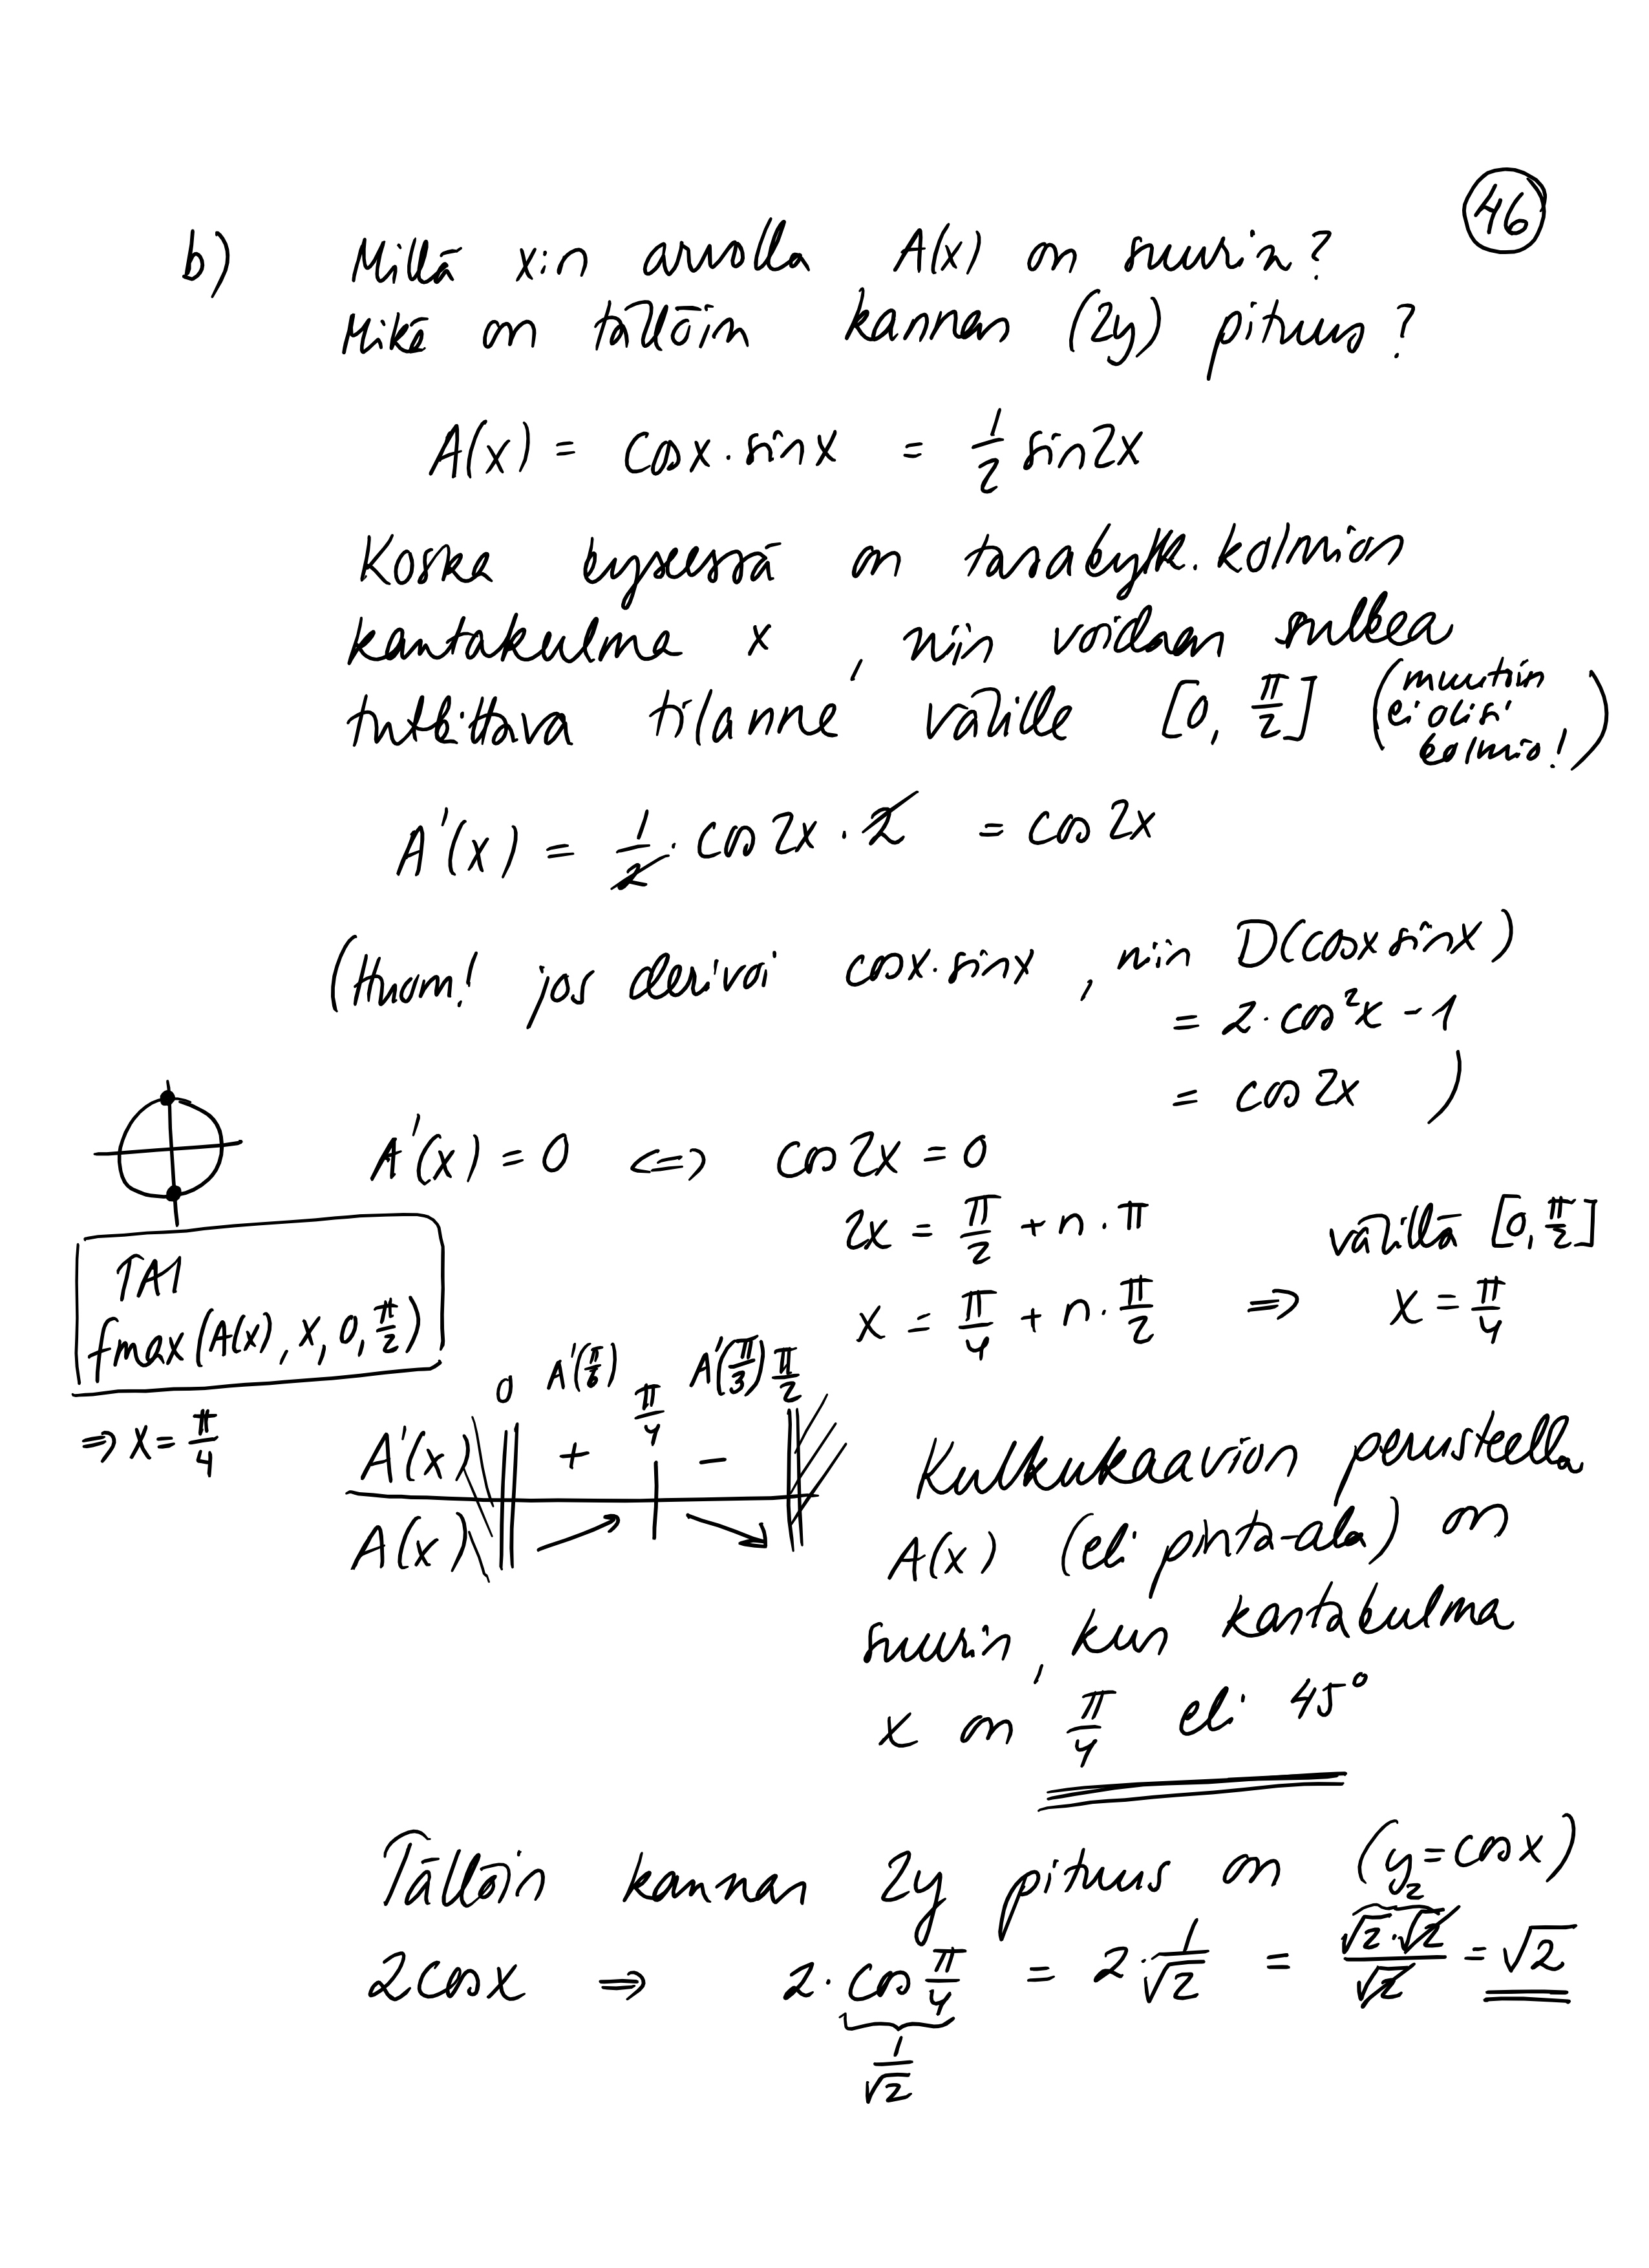 46
b) Millä x:n arvolla A(x) on suurin?
Mikä on tällöin kannan (2y) pituus?
A(x) = cosx · sinx = 1/2 sin2x
Koska kyseessä on tasakylk. kolmion
kantakulma x, niin voidaan sulkea
tutkittava tilanne välille [0, π/2] (muutoin
ei olisi
kolmio!)
A'(x) = 1/2 · cos2x · 2 = cos2x
(Huom! jos derivoi cosx · sinx, niin D(cosx sinx)
= 2 · cos²x - 1
= cos2x )
A'(x) = 0 <=> cos2x = 0
2x = π/2 + n · π välillä [0, π/2]
x = π/4 + n · π/2 => x = π/4
TAI
fmax(A(x), x, 0, π/2)
=> x = π/4
0 A'(π/6) π/4 A'(π/3) π/2
A'(x) + -
A(x)
Kulkukaavion perusteella
A(x) (eli pinta-ala) on
suurin, kun kantakulma
x on π/4 eli 45°
Tällöin kannan 2y pituus on (y = cosx)
2
2cosx => 2 · cos π/4 = 2 · 1/√2 = √2 · √2/√2 = √2
1/√2